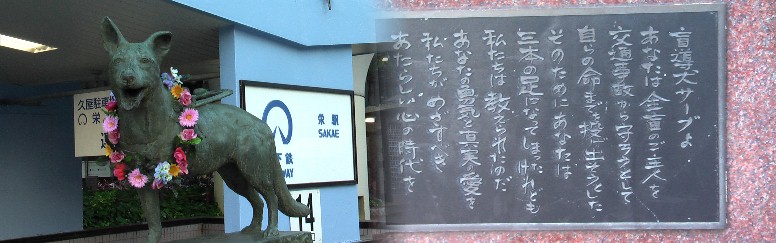 久屋駐車
栄
栄駅
SAKAE
下鉄
WAY
14
盲導犬サーブよ
あなたは全盲のご主人を
交通事故から守ろうとして
自らの命まで投げ出そうとした
そのためにあなたは
三本の足になってしまったけれども
私たちは教えられたのだ
あなたの勇気と真実の愛を
私たちがめざすべき
あたらしい心の時代を